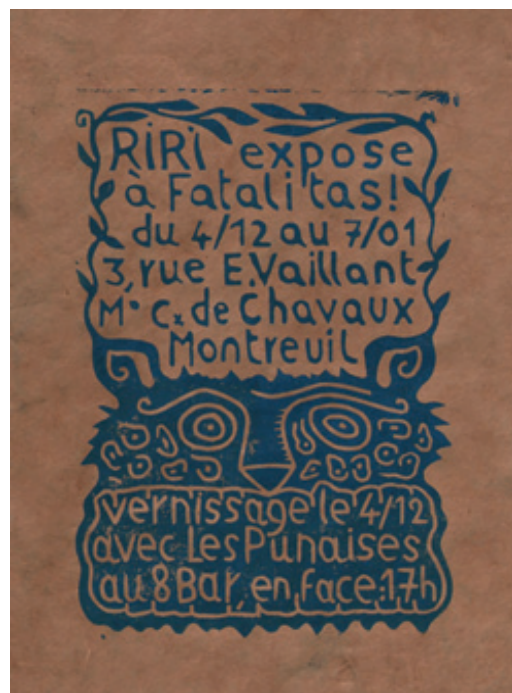 RiRi expose
à Fatali'tas!
du 4/12 au 7/01
3, rue E.Vaillant
M° Cx de Chavaux
Montreuil
vernissage le 4/12
avec Les Punaises
au 8 Bar, en face:17h